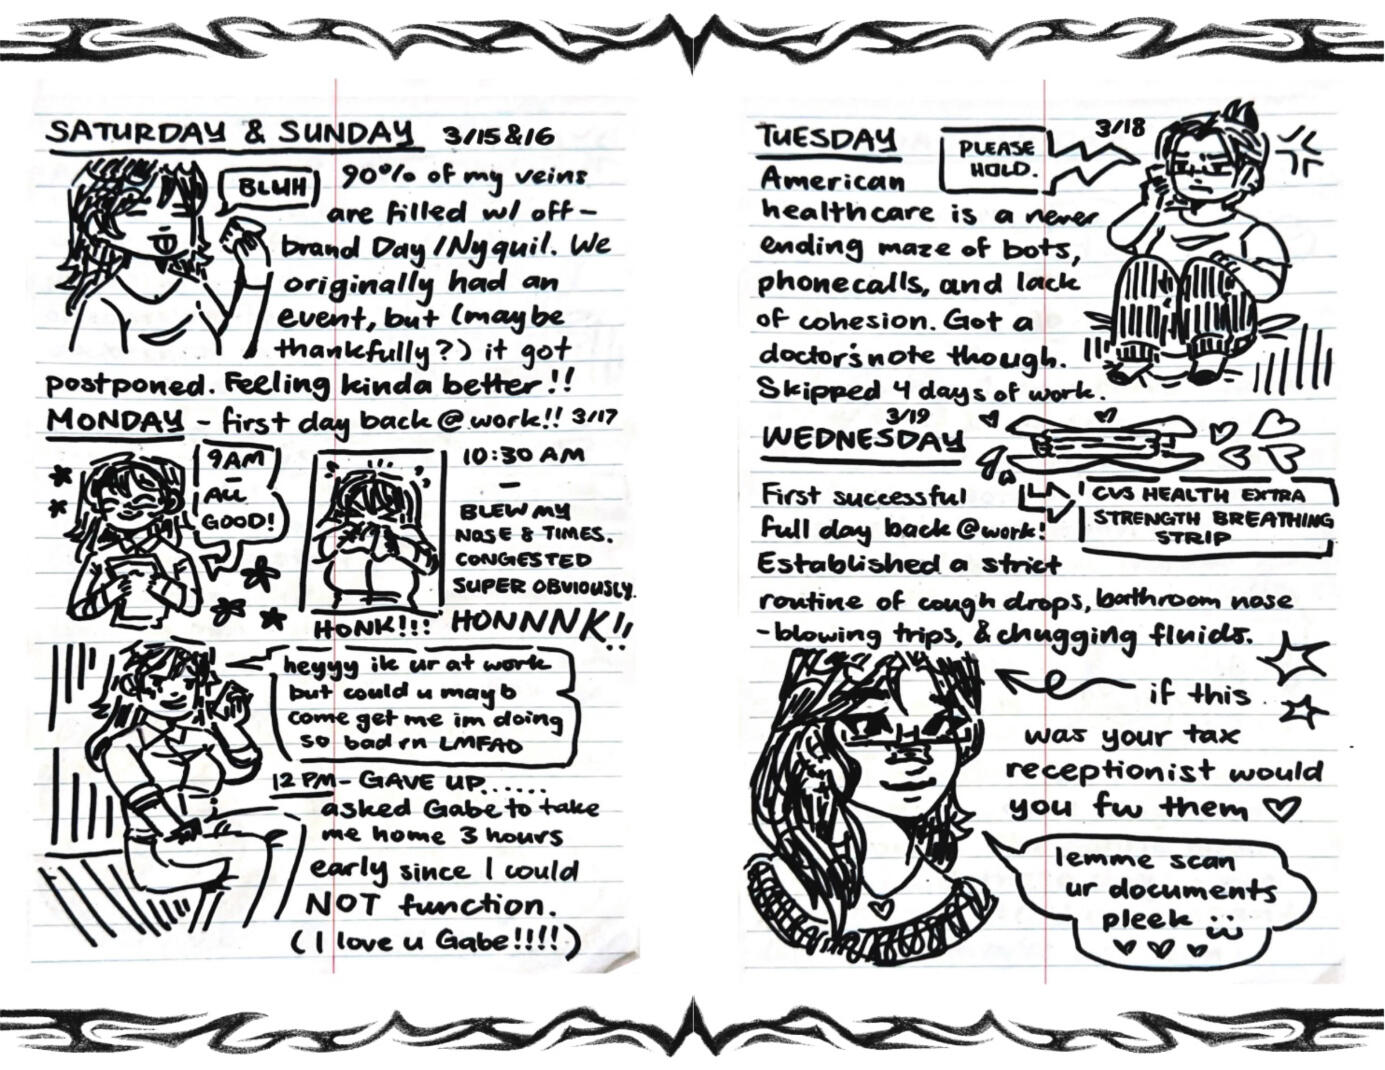 SATURDAY & SUNDAY 3/15&16
BLUH
90% of my veins
are filled w/ off-
brand Day/Nyquil. We
originally had an
event, but (maybe
thankfully?) it got
postponed. Feeling kinda better!!
MONDAY - first day back @ work!! 3/17
9AM
-
ALL
GOOD!
10:30 AM
-
BLEW MY
NOSE 8 TIMES.
CONGESTED
SUPER OBVIOUSLY.
HONK!!! HONNNK!!
heyyy ik ur at work
but could u mayb
come get me im doing
so bad rn LMFAO
12 PM - GAVE UP......
asked Gabe to take
me home 3 hours
early since I could
NOT function.
(I love u Gabe!!!!)
TUESDAY 3/18
PLEASE
HOLD.
American
healthcare is a never
ending maze of bots,
phonecalls, and lack
of cohesion. Got a
doctor's note though.
Skipped 4 days of work.
3/19
WEDNESDAY
CVS HEALTH EXTRA
STRENGTH BREATHING
STRIP
First successful
full day back @work!
Established a strict
routine of cough drops, bathroom nose
-blowing trips, & chugging fluids.
if this
was your tax
receptionist would
you fw them ♡
lemme scan
ur documents
pleek :)